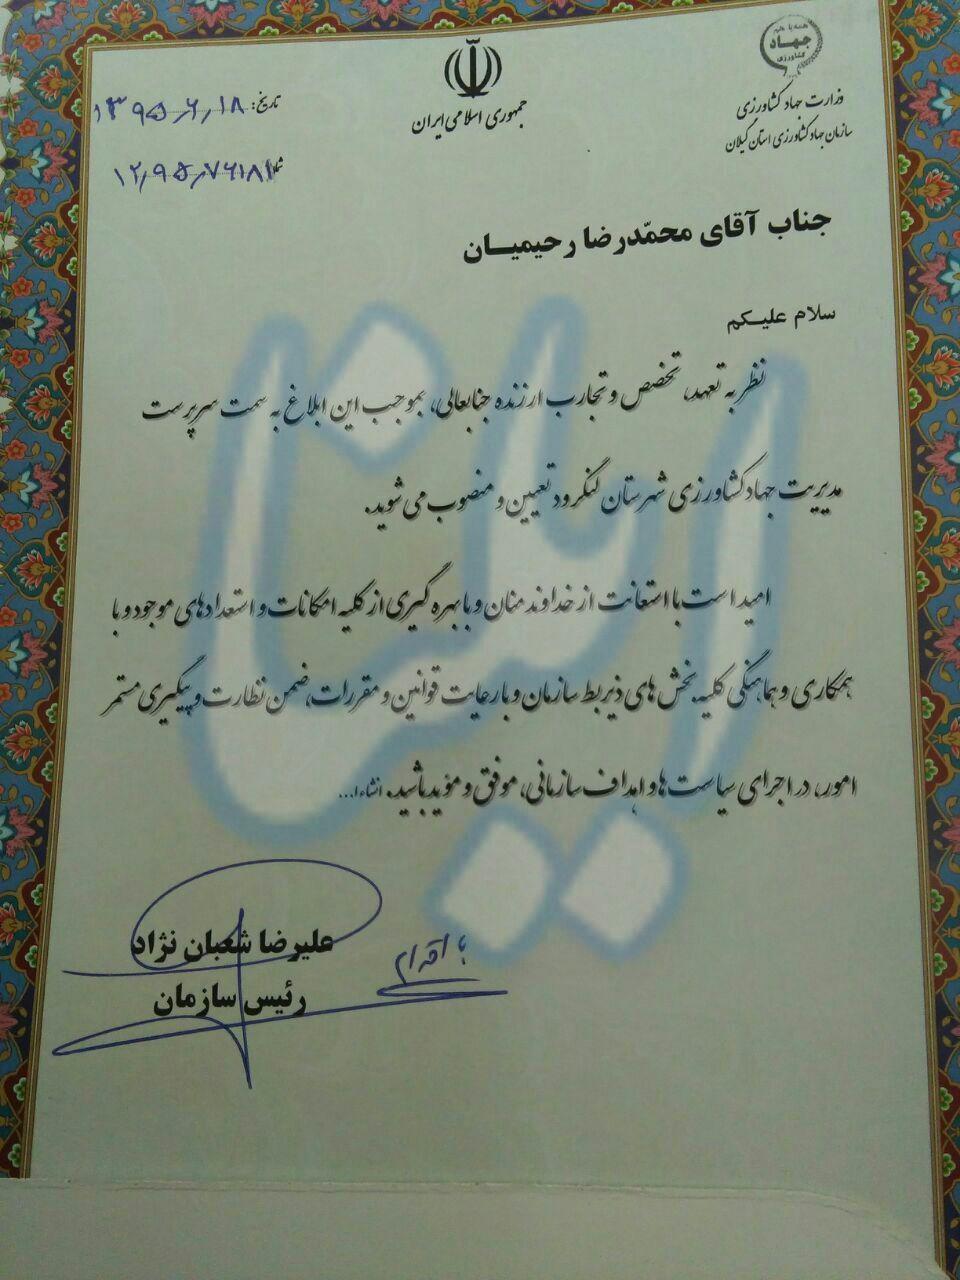 همه با هم
جهاد
کشاورزی
وزارت جهاد کشاورزی
سازمان جهاد کشاورزی استان گیلان
جمهوری اسلامی ایران
تاریخ: ۱۳۹۵٫۶٫۱۸
۱۲٫۹۵٫۷۶۱۸۱
جناب آقای محمّدرضا رحیمیان
سلام علیکم
نظر به تعهد، تخصص و تجارب ارزنده جنابعالی، بموجب این ابلاغ به سمت سرپرست
مدیریت جهاد کشاورزی شهرستان لنگرود تعیین و منصوب می شوید.
امید است با استعانت از خداوند منان و با بهره گیری از کلیه امکانات و استعدادهای موجود و با
همکاری و هماهنگی کلیه بخش های ذیربط سازمان و با رعایت قوانین و مقررات، ضمن نظارت و پیگیری مستمر
امور، در اجرای سیاست ها و اهداف سازمانی، موفق و مؤید باشید. انشاءا...
علیرضا شعبان نژاد
رئیس سازمان
ایلنا